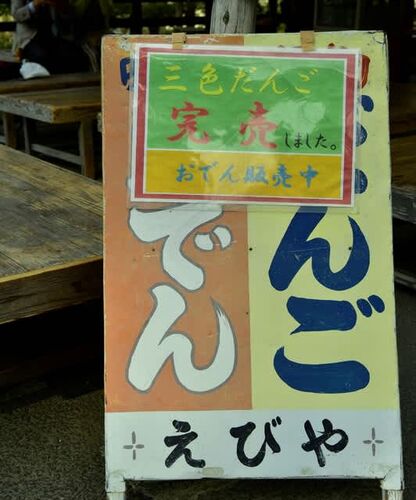 三色だんご
完売しました。
おでん販売中
でん
んご
えびや